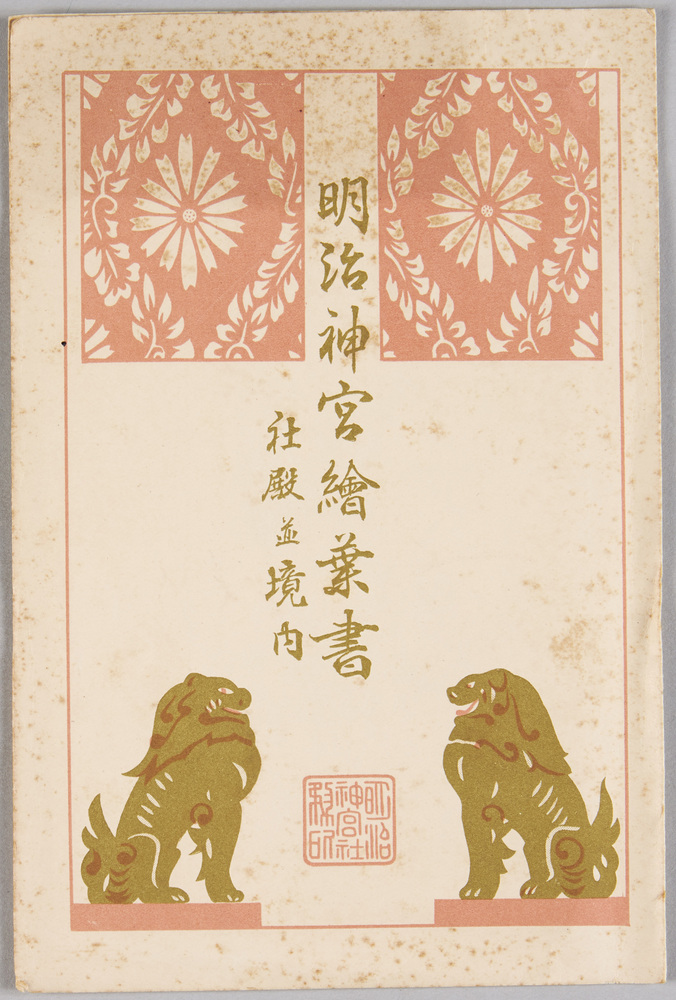 明治神宮繪葉書
社殿並境内
明治
神宮社
務所印